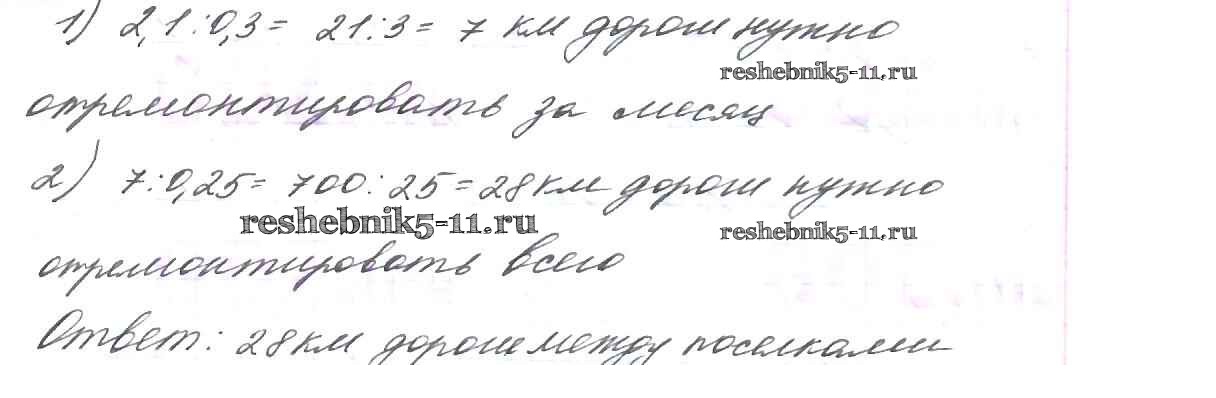 1) 2,1:0,3= 21:3= 7 км дороги нужно
reshebnik5-11.ru
отремонтировать за месяц
2) 7:0,25= 700:25=28км дороги нужно
reshebnik5-11.ru reshebnik5-11.ru
отремонтировать всего
Ответ: 28км дороги между поселками